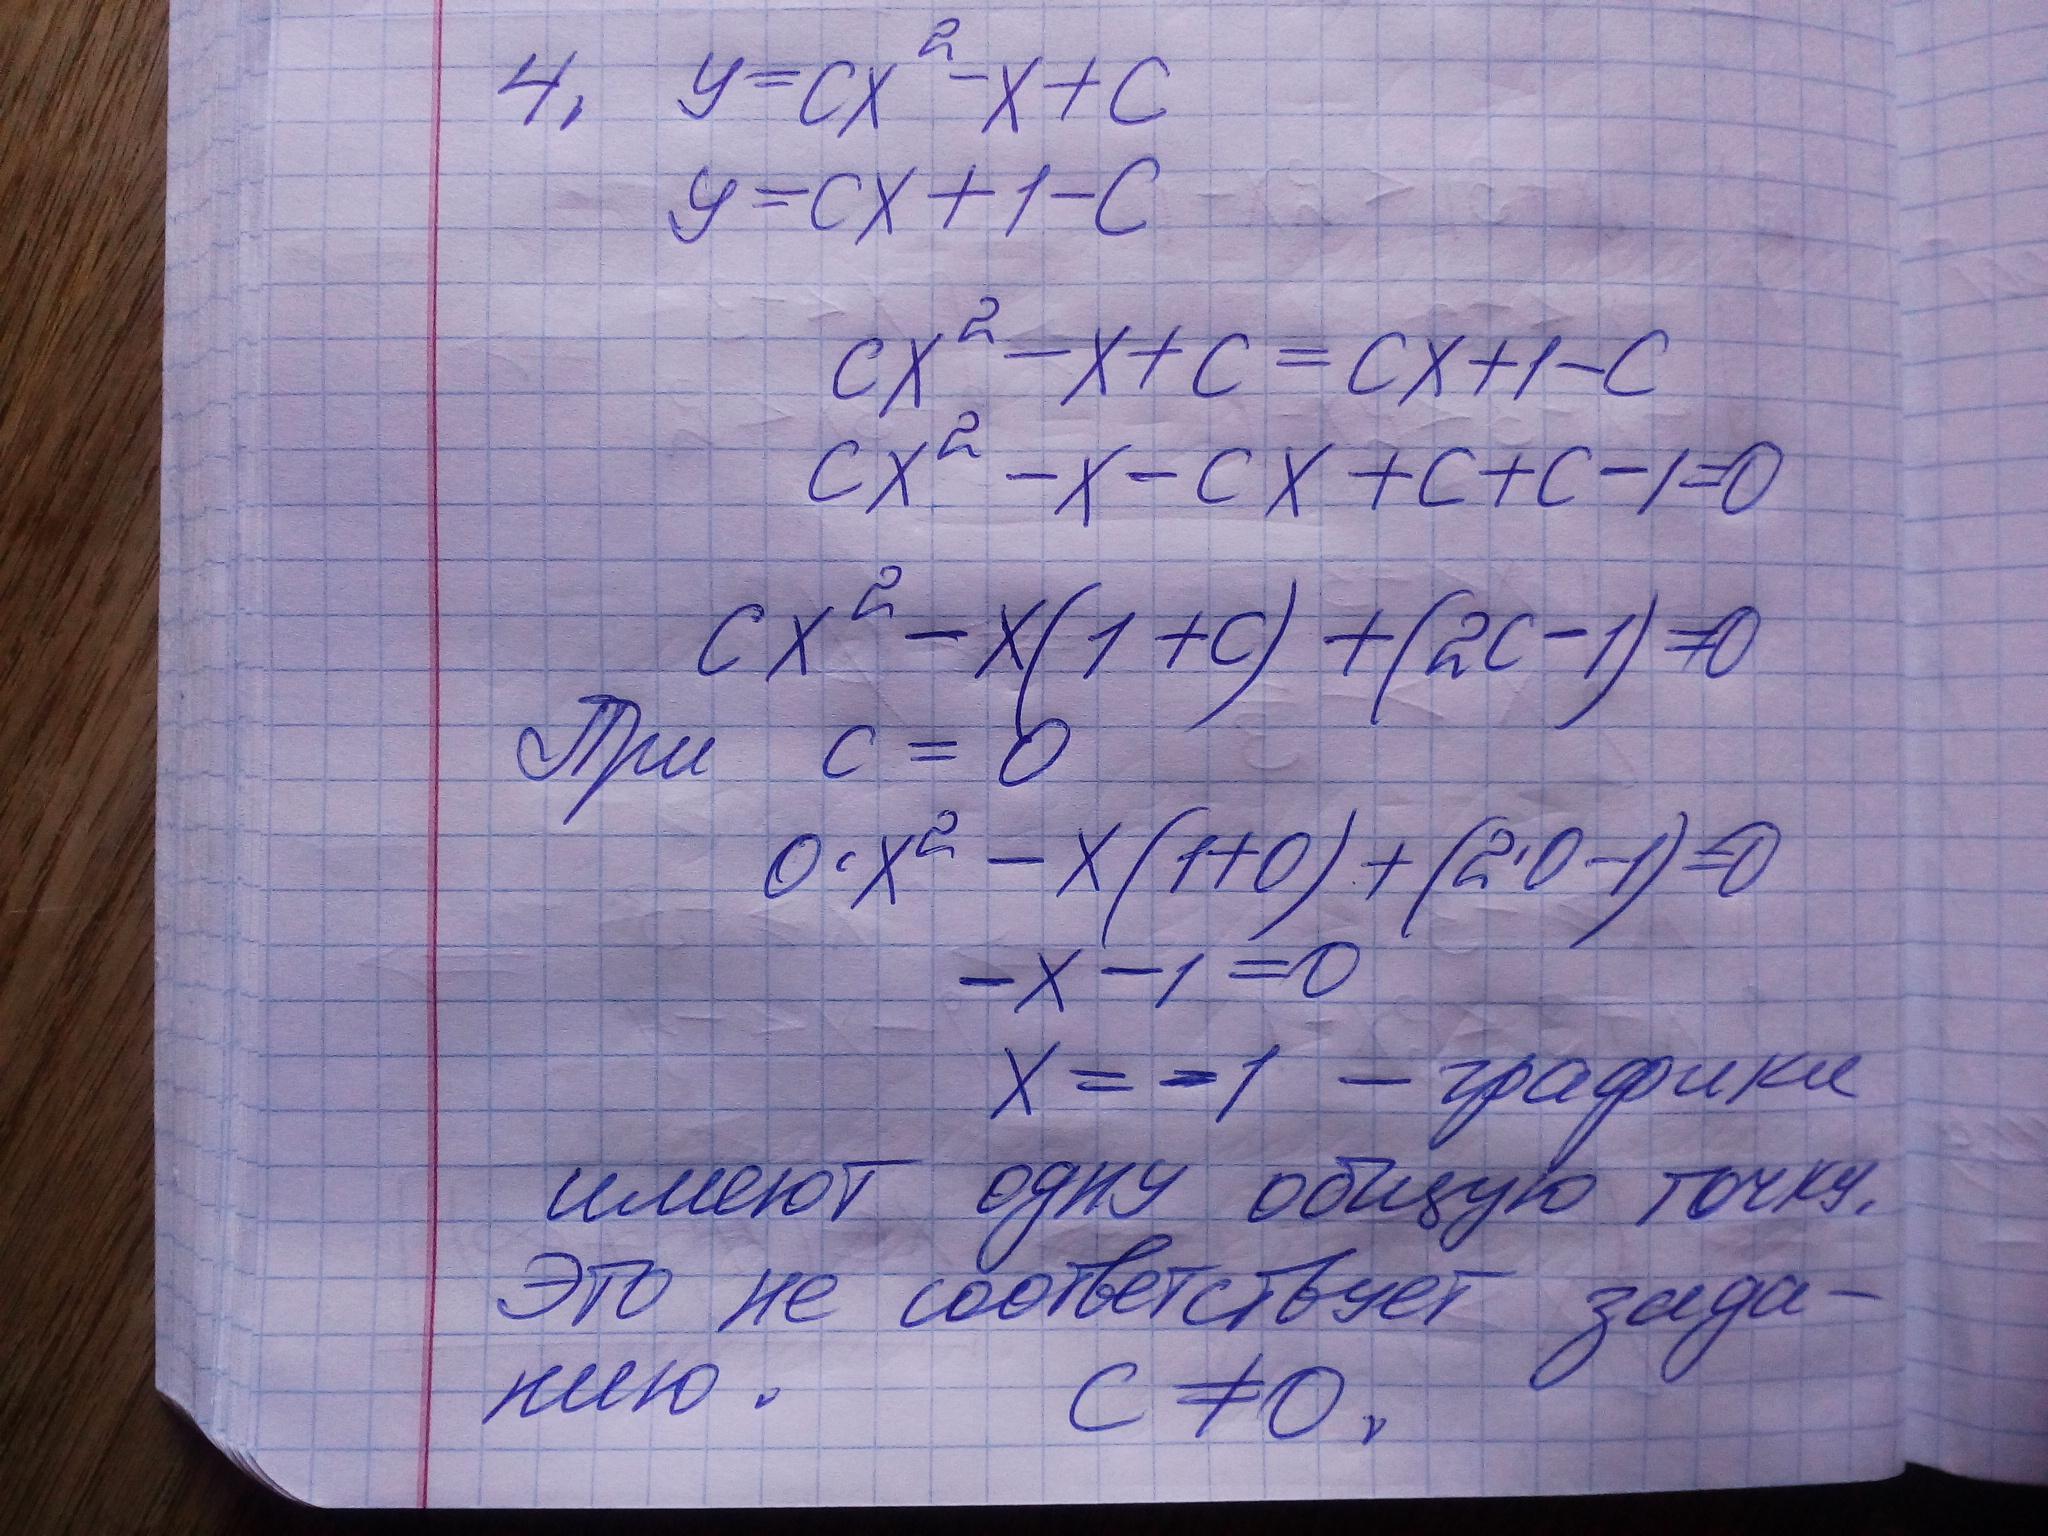 4. y=cx²-x+c
y=cx+1-c
cx²-x+c=cx+1-c
cx²-x-cx+c+c-1=0
cx²-x(1+c)+(2c-1)=0
При c=0
0·x²-x(1+0)+(2·0-1)=0
-x-1=0
x=-1 - графики
имеют одну общую точку.
Это не соответствует зада-
нию. c≠0.